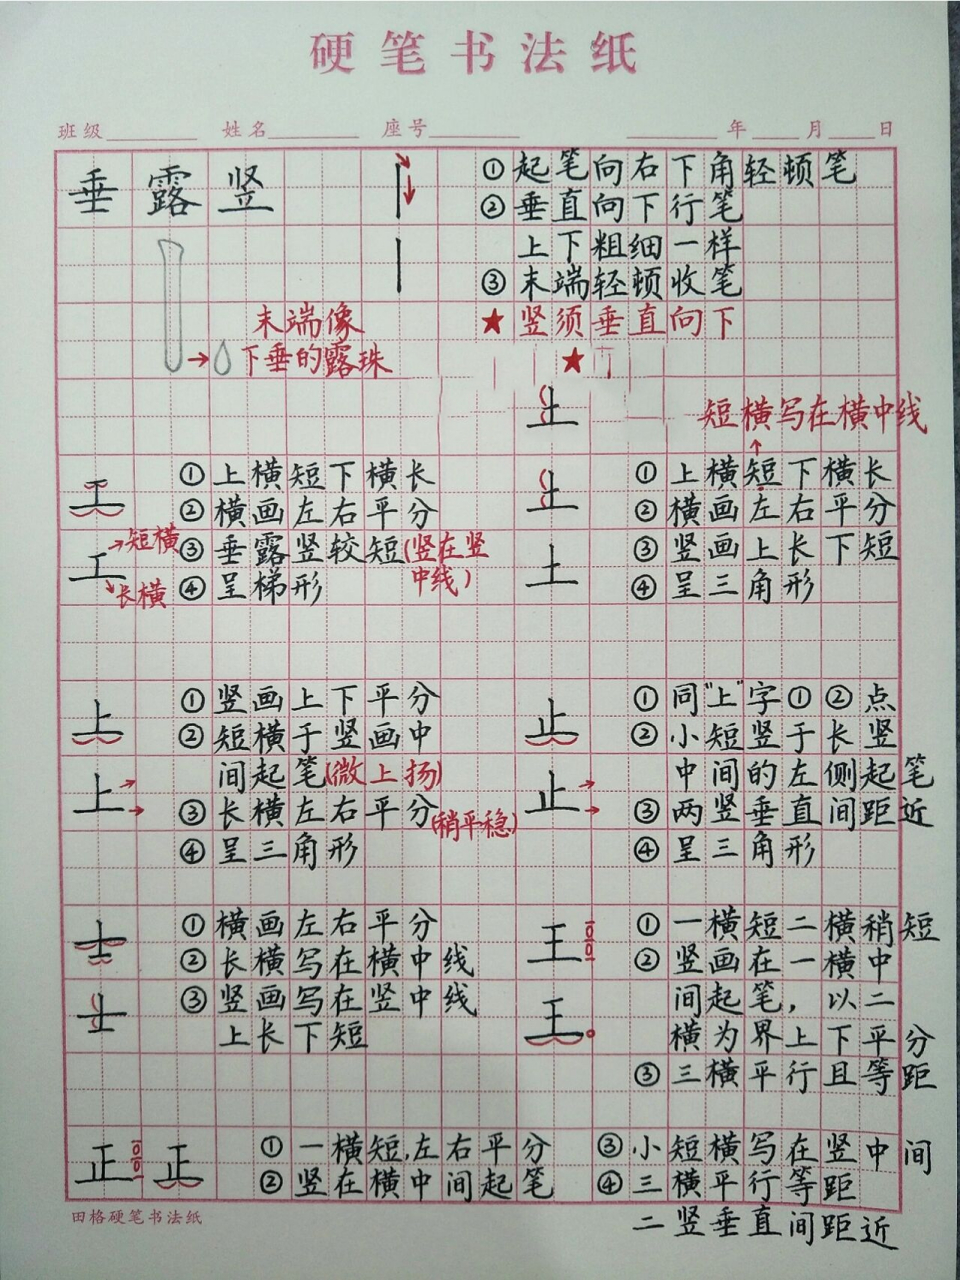 硬笔书法纸
班级 姓名 座号 年 月 日
垂露竖
①起笔向右下角轻顿笔
②垂直向下行笔
上下粗细一样
③末端轻顿收笔
★竖须垂直向下
★
末端像
下垂的露珠
工
工
短横
长横
①上横短下横长
②横画左右平分
③垂露竖较短(竖在竖中线)
④呈梯形
土
土
土
短横写在横中线
①上横短下横长
②横画左右平分
③竖画上长下短
④呈三角形
上
上
①竖画上下平分
②短横于竖画中
间起笔(微上扬)
③长横左右平分(稍平稳)
④呈三角形
止
止
①同"上"字①②点
②小短竖于长竖
中间的左侧起笔
③两竖垂直间距近
④呈三角形
士
士
①横画左右平分
②长横写在横中线
③竖画写在竖中线
上长下短
王
王
①一横短二横稍短
②竖画在一横中
间起笔，以二
横为界上下平分
③三横平行且等距
正 正
①一横短,左右平分
②竖在横中间起笔
③小短横写在竖中间
④三横平行等距
二竖垂直间距近
田格硬笔书法纸